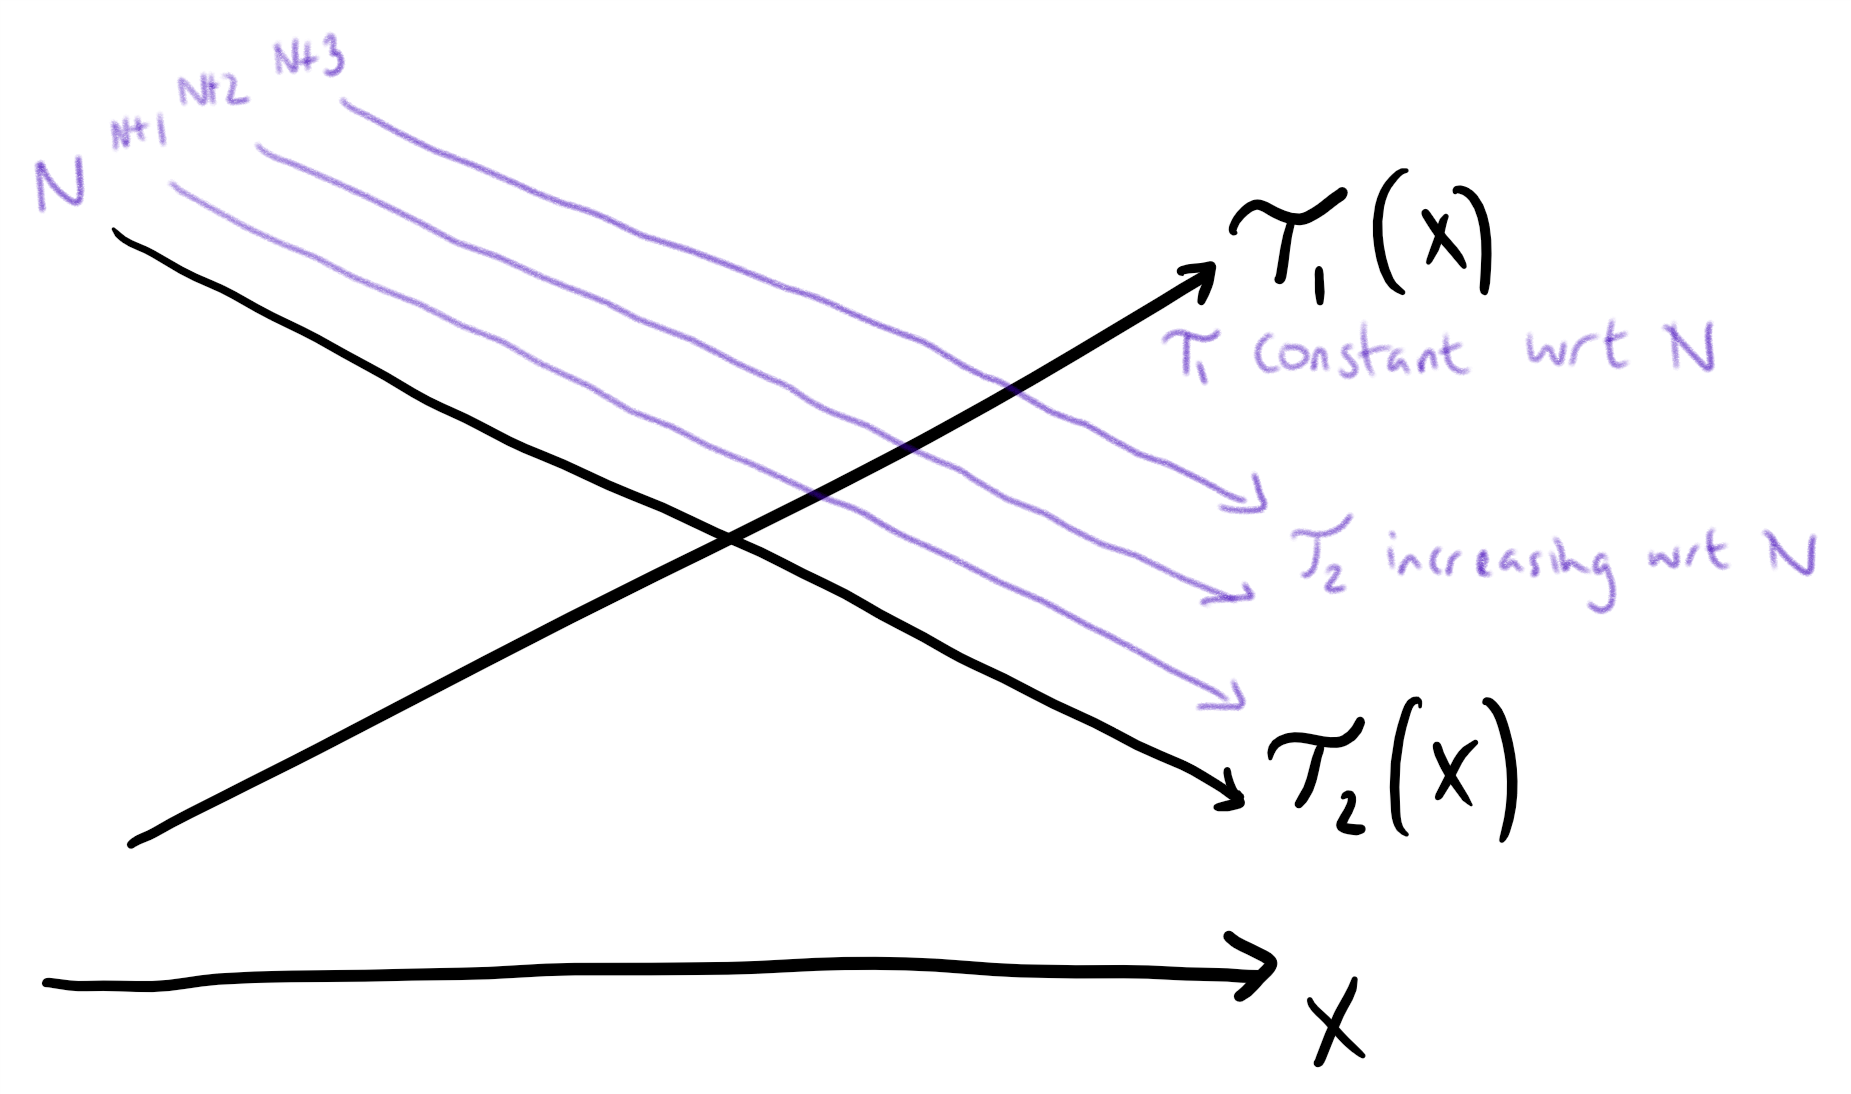 N+3
N+2
N+1
N
𝒯₁(x)
𝒯₁ constant wrt N
𝒯₂ increasing wrt N
𝒯₂(x)
x